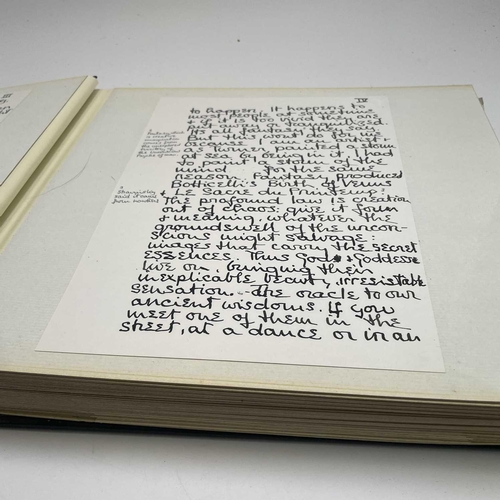 IV
to happen. It happens to
most people at sometime
& if it is too vivid they are
put away or tranquillised.
It's all fantasy they say
But this won't do for me
because I am an artist
As Turner painted a storm
at sea by being in it I had
to paint a storm of the
mind for the same
reason. Fantasy produced
Botticelli's Birth of Venus
& Le Sacre du Printemps:
The profound law is creation
out of Chaos: give it form
& meaning, whatever the
groundswell of the uncon-
scious might salvage:
images that carry the secret
essences. Thus Gods & Goddesses
live on, bringing their
inexplicable beauty, irresistable
sensation... the oracle to our
ancient wisdoms. If you
meet one of them in the
street, at a dance or in an
Stravinsky
said it came